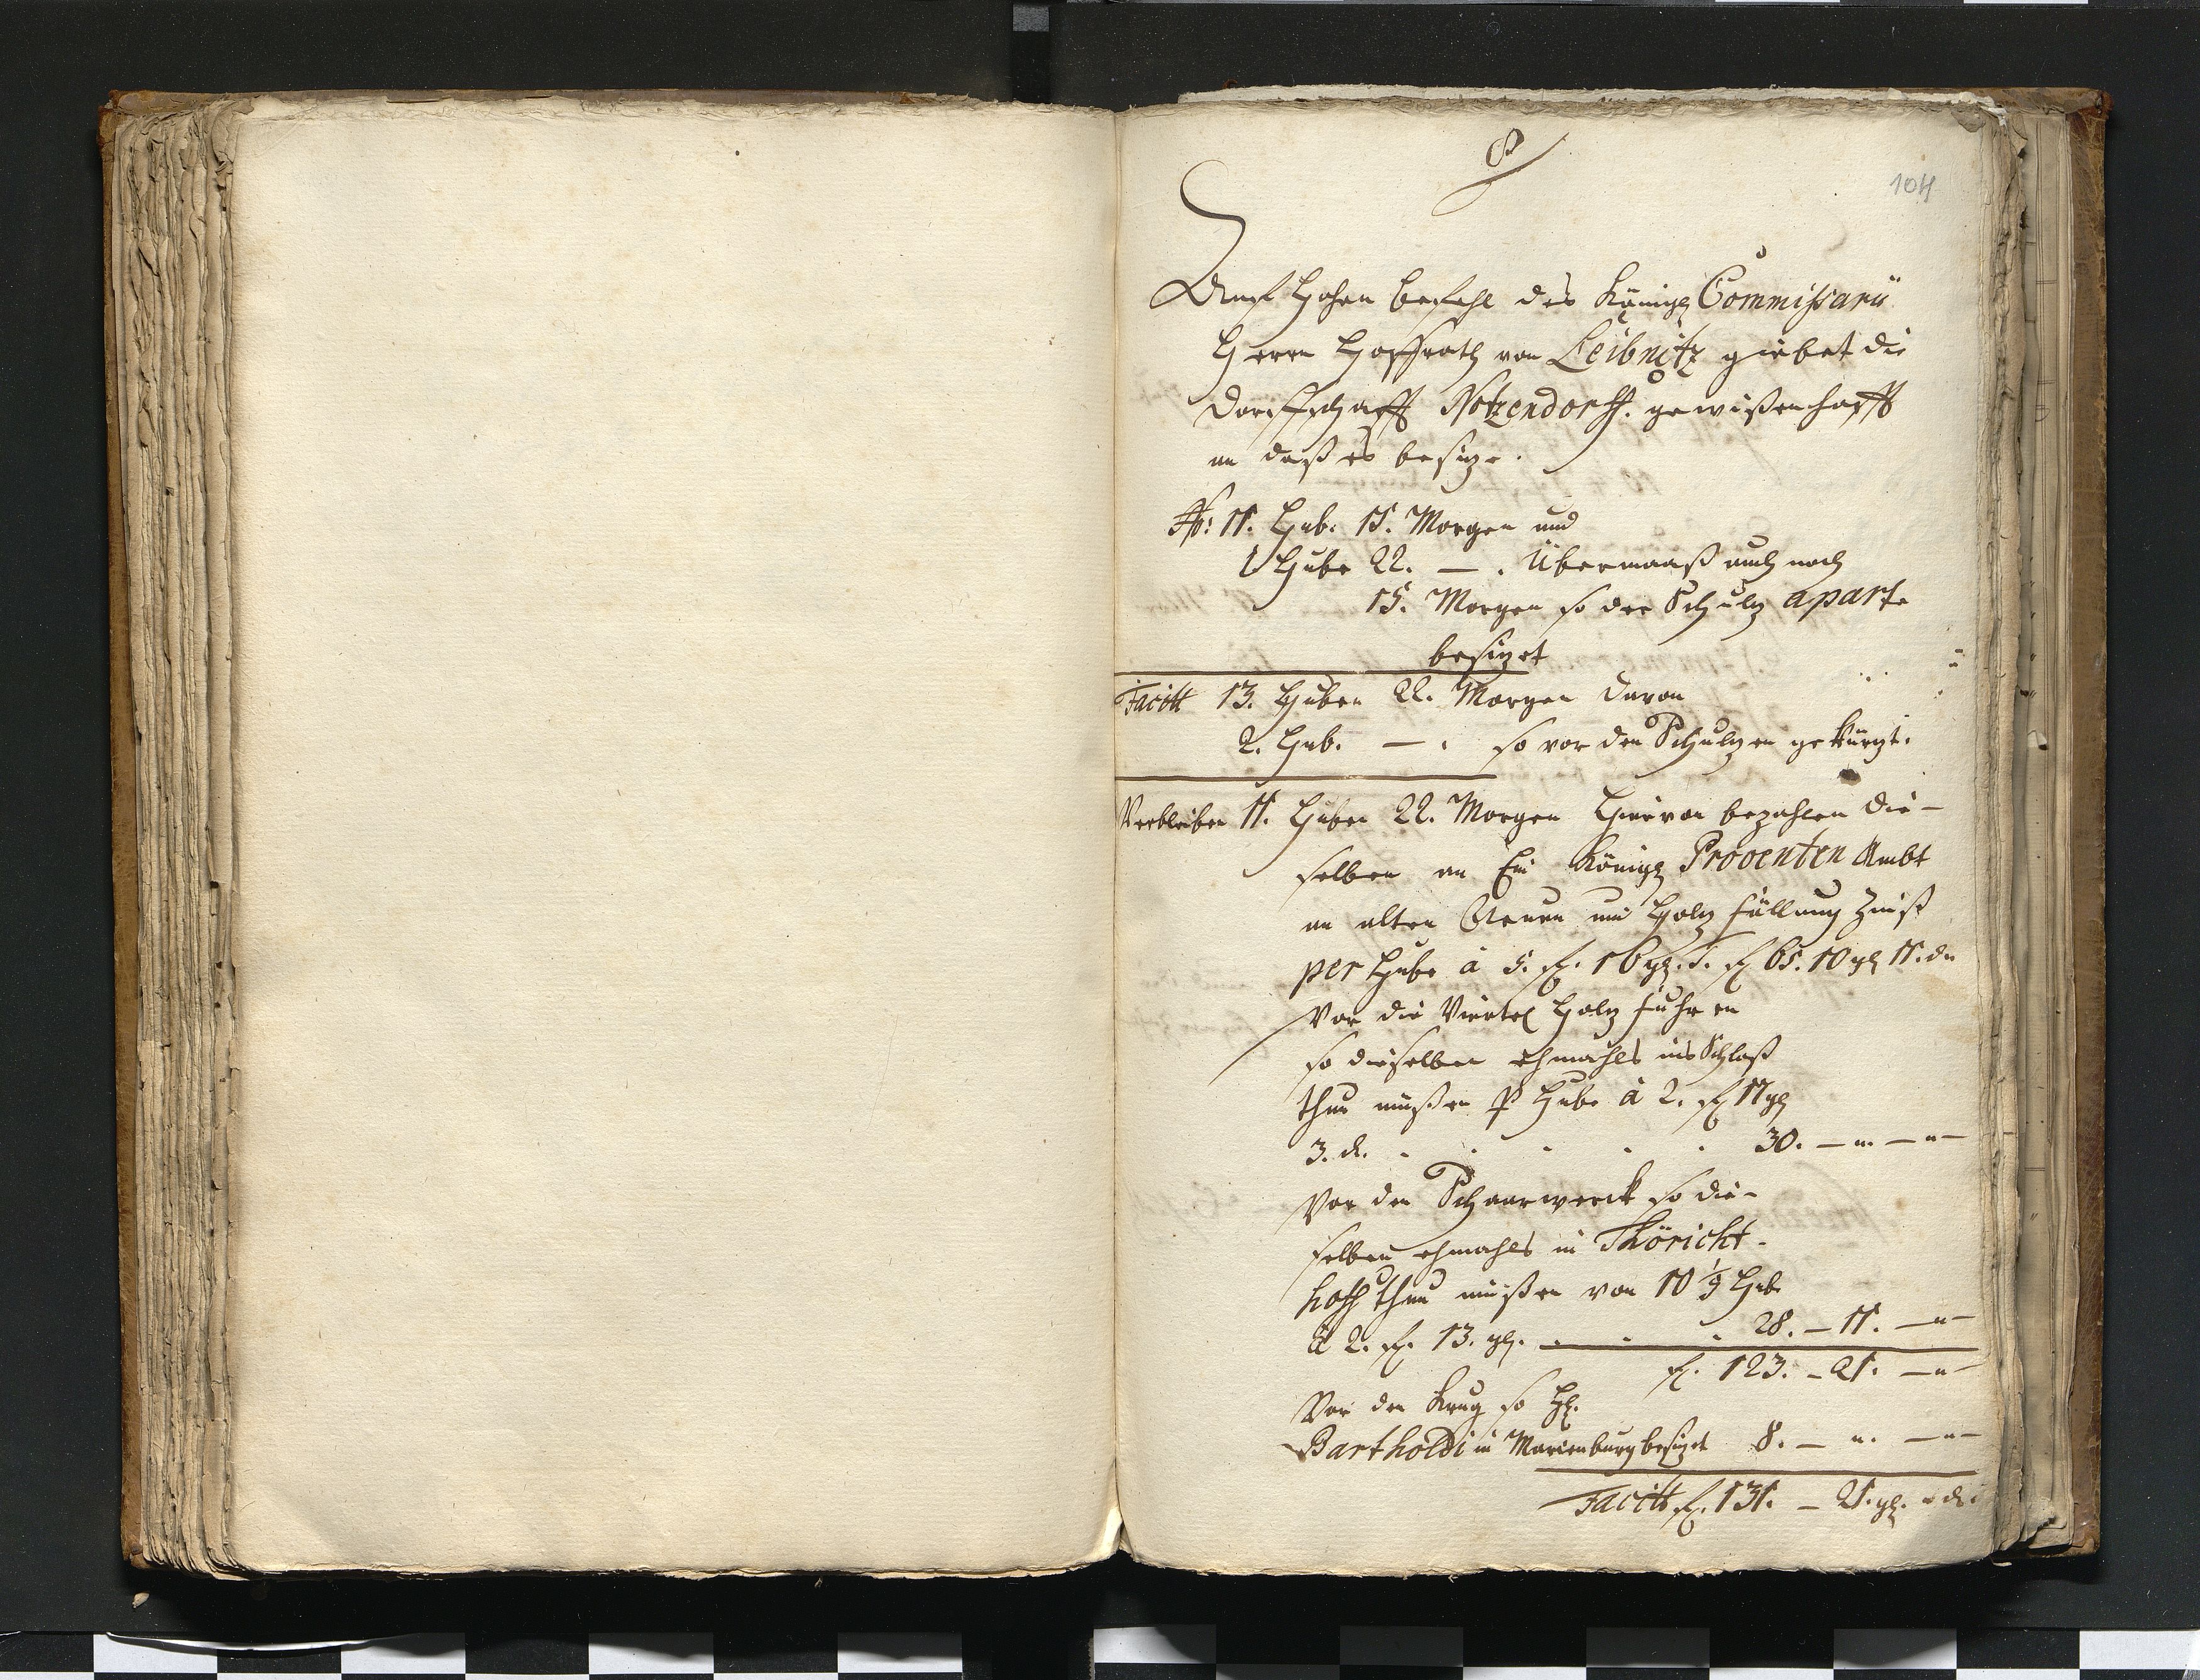 8
104
Auf Hohen Befehl des Königl Commissarii
Herrn Hoffrath von Leibnitz giebet die
Dorffschafft Notzendorff. gewißenhafft
an daß es besitze.
11. Hub. 15. Morgen und
1 Hube 22. — . Übermaaß auch noch
15. Morgen so der Schultz aparte
besitzet
Facitt 13. Huben 22. Morgen davon
2. Hub. — . so vor den Schultzen gekürtzt.
Verbleiben 11. Huben 22. Morgen hiervon bezahlen die-
selben an Ein Königl Proventen Ambt
an alten Neuen und Holtz fällung Zinß
per Hube à 5. fl. 16 gl. fl 65. 10 gl 11. dn
Vor die Viertel Holtz fuhren
so dieselben ehmahls ins Schloß
thun müßen P Hube à 2. fl 17 gl
3. d. . . . . . 30. — „ — „ —
Vor den Schaarwerck so die-
selben ehmahls in Thöricht-
hoff thun müßen von Hub
à 2. fl. 13. gl. . . . 28. — 11. — „ —
fl. 123. — 21. — „ —
Vor den Krug so H.
Bartholdi in Marienburg besitzet 8. — „ — „ —
Facitt fl. 131. — 21. gl. - d.